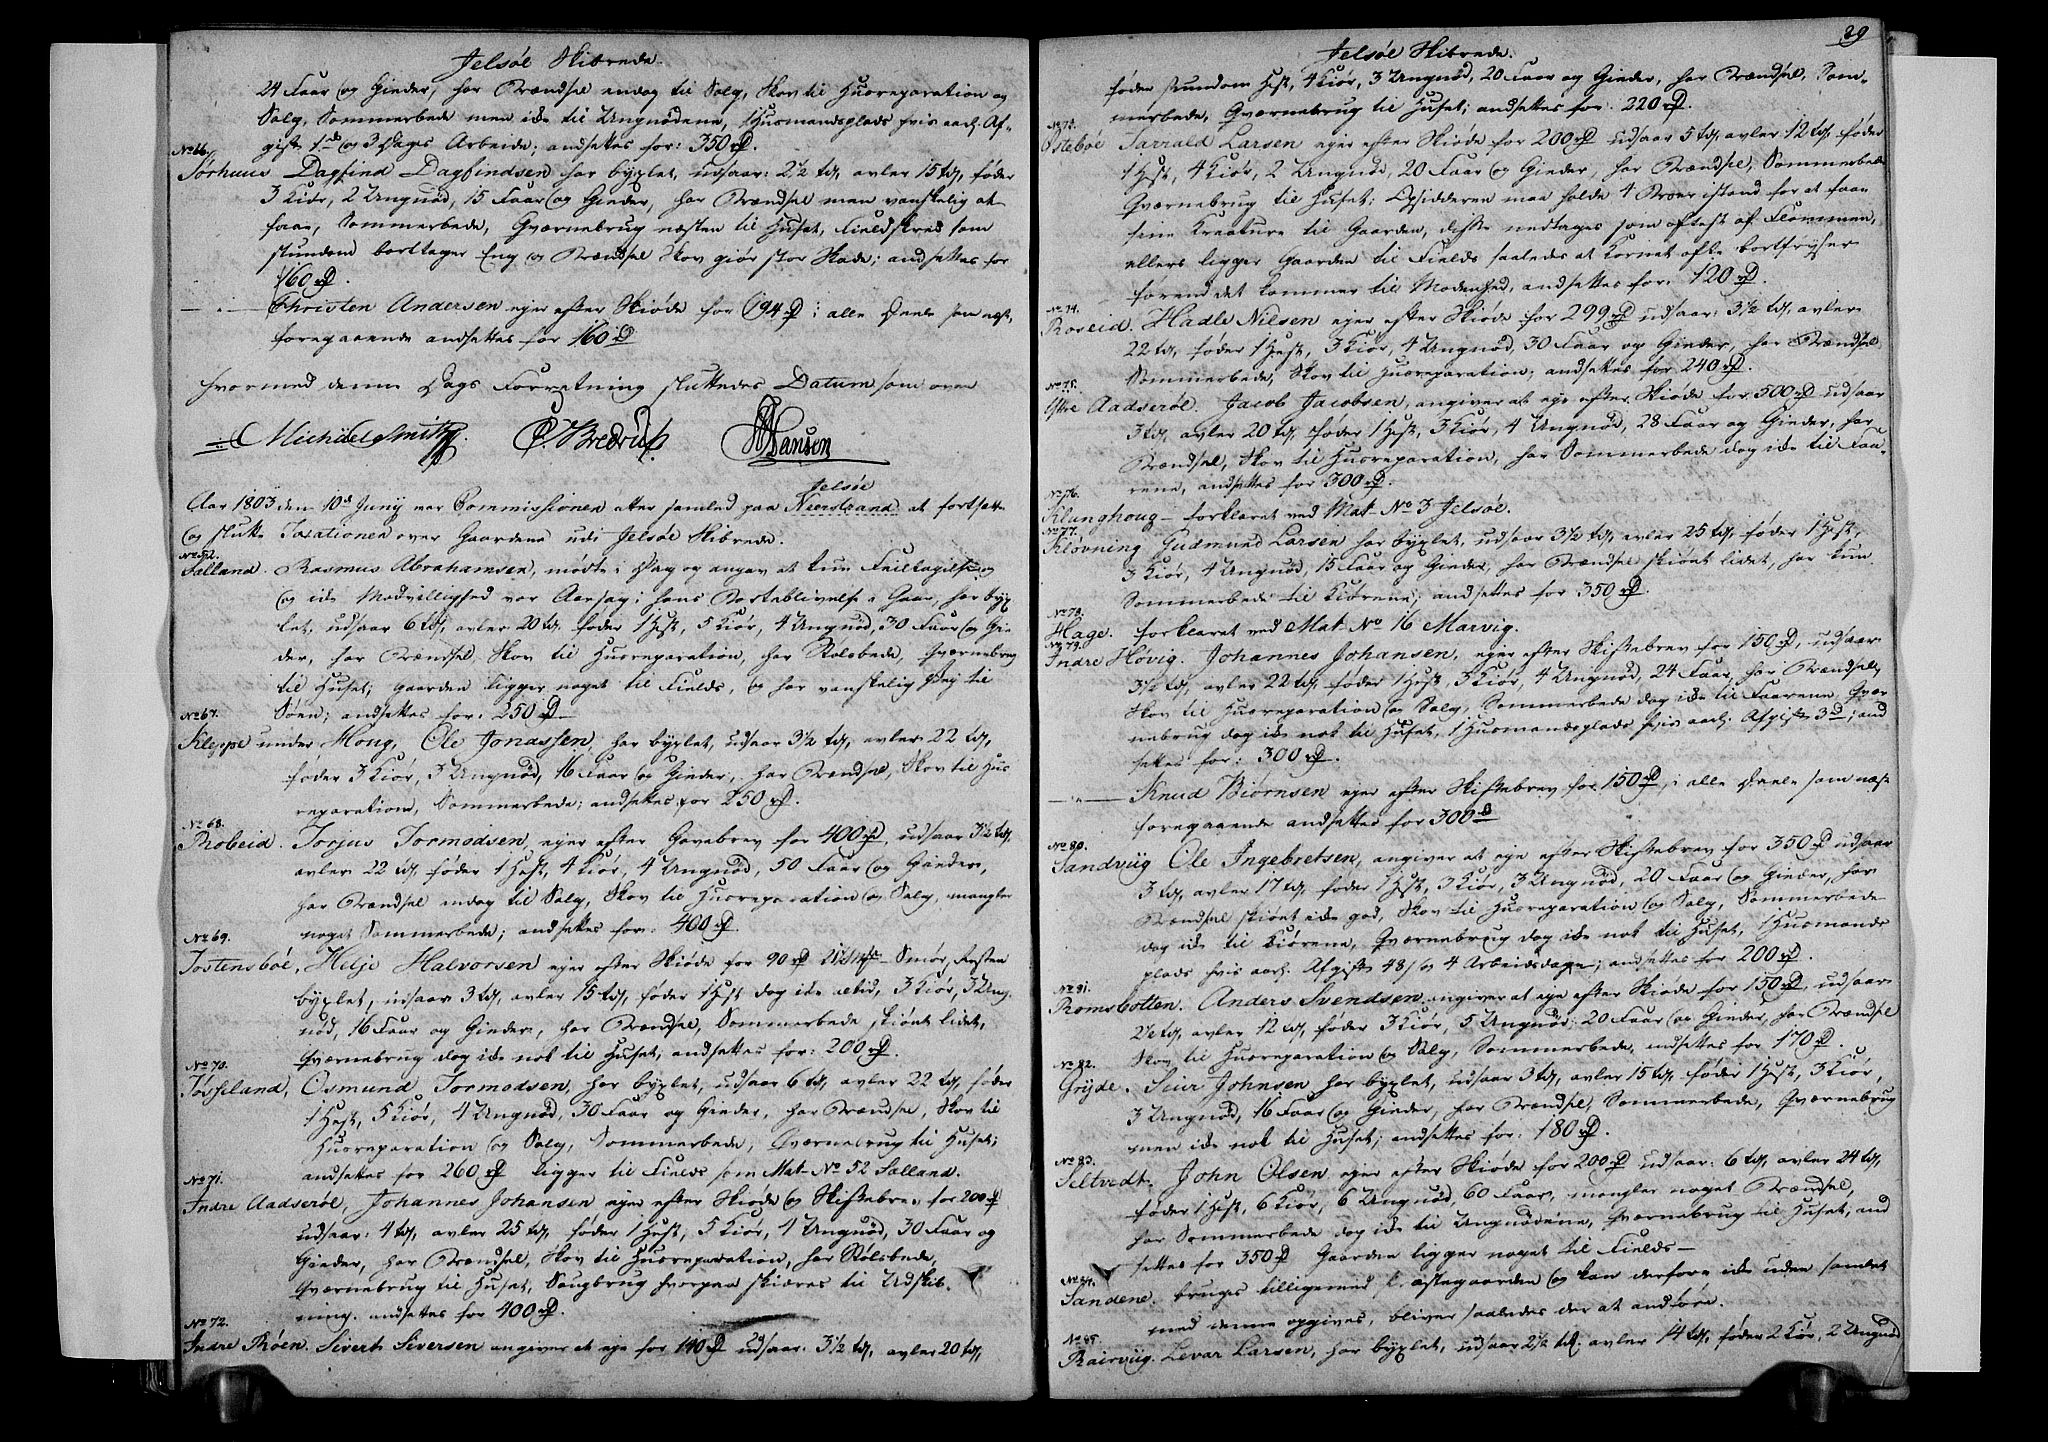 Jelsøe Skibrede.
24 Faar og Gieder, har Brændsel endog til Salg, Skov til Huusreparation og
Salg, Sommerbede men ikke til Ungnødene, 1 Husmandsplads hvis aarl. Af-
gift 1 rd og 3 Dags Arbeide; andsettes for: 350 rD.
No 66.
Sørhuus Dagfind Dagfindsen har byxlet, udsaar: 2½ td, avler 15 td, føder
3 Kiør, 2 Ungnød, 15 Faar og Gieder, har Brændsel men vanskelig at
faae, Sommerbede, Qværnebrug næsten til Huset, Fieldskred som
stundom borttager Eng og Brændsel Skov giør stor Skade; andsettes for
160 rD.
Christen Andersen ejer efter Skiøde for 94 rD i alle Deele som næst,
foregaaende andsettes for 160 rD
hvormed denne Dags Forretning sluttedes Datum som oven
Michael Smith. C. Bredrup. Hansen
Jelsøe
Aar 1803 den 10de Juny var Commissionen atter samled paa Neerstrand at fortsætte
og slutte Taxationen over Gaardene udi Jelsøe Skibrede.
No 52.
Sælland. Rasmus Abrahamsen, mødte i Dag og angav at kun Feiltagelse
og ikke Modvillighed var Aarsag i hans Borteblivelse i Gaar, har byx
let, udsaar 6 td, avler 20 td, føder 1 Hest, 5 Kiør, 4 Ungnød, 30 Faar og Gie-
der, har Brændsel, Skov til Huusreparation, har Stolsbede, Qværnebrug
til Huset; gaarden ligger noget til Fields, og har vanskelig Vej til
Søen; andsettes for: 250 rD
No 67.
Kleppe under Houg, Ole Jonassen, har byxlet, udsaar 3½ td, avler 22 td,
føder 3 Kiør, 3 Ungnød, 16 Faar og Gieder, har Brændsel, Skov til Huus
reparation, Sommerbede; andsettes for 250 rD.
No 68.
Robeid. Torjus Tormodsen, ejer efter Gavebrev for 400 rD, udsaar 3½ td,
avler 22 td, føder 1 Hest, 4 Kiør, 4 Ungnød, 50 Faar og Gieder,
har Brændsel endog til Salg, Skov til Huusreparation og Salg, mangler
noget Sommerbede; andsettes for: 400 rD.
No 69.
Tostensbøe, Helje Halvorsen ejer efter Skiøde for 90 rD Smør, Resten
byxlet, udsaar 3 td, avler 15 td, føder 1 Hest dog ikke altid, 3 Kiør, 3 Ung-
nød, 16 Faar og Gieder, har Brændsel, Sommerbede skiønt lidet,
Qværnebrug dog ikke nok til Huset, andsettes for: 200 rD.
No 70.
Tøsseland, Osmund Tormodsen, har byxlet, udsaar 6 td, avler 22 td, føder
1 Hest, 5 Kiør, 4 Ungnød, 30 Faar og Gieder, har Brændsel, Skov til
Huusreparation og Salg, Sommerbede, Qværnebrug til Huset;
andsettes for 260 rD ligger til Fields som Mat. No 52 Sælland.
No 71.
Indre Aadserøl, Johannes Johansen ejer efter Skiøde og Skiftebrev for 200 rD
udsaar: 4 td, avler 25 td, føder 1 Hest, 5 Kiør, 4 Ungnød, 30 Faar og
Gieder, har Brændsel, Skov til Huusreparation, har Stølsbede,
Qværnebrug til Huset, Saugbrug hvorpaa skiæres til Udskib-
ning. andsettes for 400 rD.
No 72.
Indre Røen. Sivert Siversen angiver at eje for 140 rD udsaar: 3½ td, avler 20 td,
39
Jelsøe Skibrede.
føder stundom Hest, 4 Kiør, 3 Ungnød, 20 Faar og Gieder, har Brændsel, Som-
merbede, Qværnebrug til Huset; andsettes for: 220 rD.
No 73.
Østebøe Tarrald Larsen ejer efter Skiøde for 200 rD udsaar 5 td, avler 12 td, føder
1 Hest, 4 Kiør, 2 Ungnød, 20 Faar og Gieder, har Brændsel, Sommerbede
Qværnebrug til Huset; Opsidderen maa holde 4 Broer istand for at faae
sine Kreature til Gaarden, disse nedtages som oftest af Flommen,
ellers ligger Gaarden til Fields saaledes at Kornet ofte bortfryser
forend det kommer til Modenhed, andsettes for: 120 rD.
No 74.
Roreid. Hadle Nilsen ejer efter Skiøde for 299 rD udsaar: 3½ td, avler
22 td, føder 1 Hest, 3 Kiør, 4 Ungnød, 30 Faar og Gieder, har Brændsel,
Sommerbede, Skov til Huusreparation; andsettes for 240 rD.
No 75.
Ytre Aadserøl. Jacob Jacobsen, angiver at eje efter Skiøde for 500 rD udsaar
3 td, avler 20 td, føder 1 Hest, 3 Kiør, 4 Ungnød, 28 Faar og Gieder, har
Brændsel, Skov til Huusreparation, har Sommerbede dog ikke til Faa-
rene, andsettes for 300 rD.
No 76.
Klunghoug - forklaret ved Mat. No 3 Jelsøe.
No 77.
Kløvning Gudmund Larsen har byxlet, udsaar 3½ td, avler 25 td, føder 1 Hest,
3 Kiør, 4 Ungnød, 15 Faar og Gieder, har Brændsel skiønt lidet, har kun
Sommerbede til Kiørene; andsettes for 350 rD.
No 78.
Hage. forklaret ved Mat. No 16 Marvig.
No 79.
Indre Høvig. Johannes Johansen, ejer efter Skiftebrev for 150 rD, udsaar
3½ td, avler 22 td, føder 1 Hest, 3 Kiør, 4 Ungnød, 24 Faar, har Brændsel,
Skov til Huusreparation og Salg, Sommerbede dog ikke til Faarene, Qvær
nebrug dog ikke nok til Huset, 1 Husmandsplads hvis aarl. Afgift 3 D; and
settes for: 300 rD.
Knud Biørnsen ejer efter Skiftebrev for 150 rD, i alle Deele som næst
foregaaende andsettes for 300 rD
No 80.
Sandviig Ole Ingebretsen, angiver at eje efter Skiftebrev for 350 rD udsaar
3 td, avler 17 td, føder 1 Hest, 3 Kiør, 3 Ungnød, 20 Faar og Gieder, har
Brændsel skiønt ikke god, Skov til Huusreparation og Salg, Sommerbede
dog ikke til Kiørene, Qværnebrug dog ikke nok til Huset, 1 Husmands
plads hvis aarl. Afgift 48 s og 4 Arbeidsdage; andsettes for 200 rD.
No 81.
Romsbotten. Anders Svendsen angiver at eje efter Skiøde for 150 rD, udsaar
2 td, avler 12 td, føder 3 Kiør, 5 Ungnød, 20 Faar og Gieder, har Brændsel
Skov til Huusreparation og Salg, Sommerbede, andsettes for 170 rD.
No 82.
Gryde. Siur Johnsen har byxlet, udsaar 3 td, avler 15 td, føder 1 Hest, 3 Kiør,
3 Ungnød, 16 Faar og Gieder, har Brændsel, Sommerbede, Qværnebrug
men ikke nok til Huset; andsettes for: 180 rD.
No 83.
Teltvedt. John Olsen ejer efter Skiøde for 200 rD udsaar: 6 td, avler 24 td,
føder 1 Hest, 6 Kiør, 6 Ungnød, 60 Faar, mangler noget Brændsel,
har Sommerbede dog ikke til Ungnødene, Qværnebrug til Huset, and
settes for 350 rD Gaarden ligger noget til Fields -
No 84.
Sandene. bruges tilligemed Præstegaarden og kan derfore ikke uden samlet
med denne opgives, bliver saaledes der at anføre.
No 85.
Rairviig. Levar Larsen, har byxlet, udsaar 2½ td, avler 14 td, føder 2 Kiør, 2 Ungnød